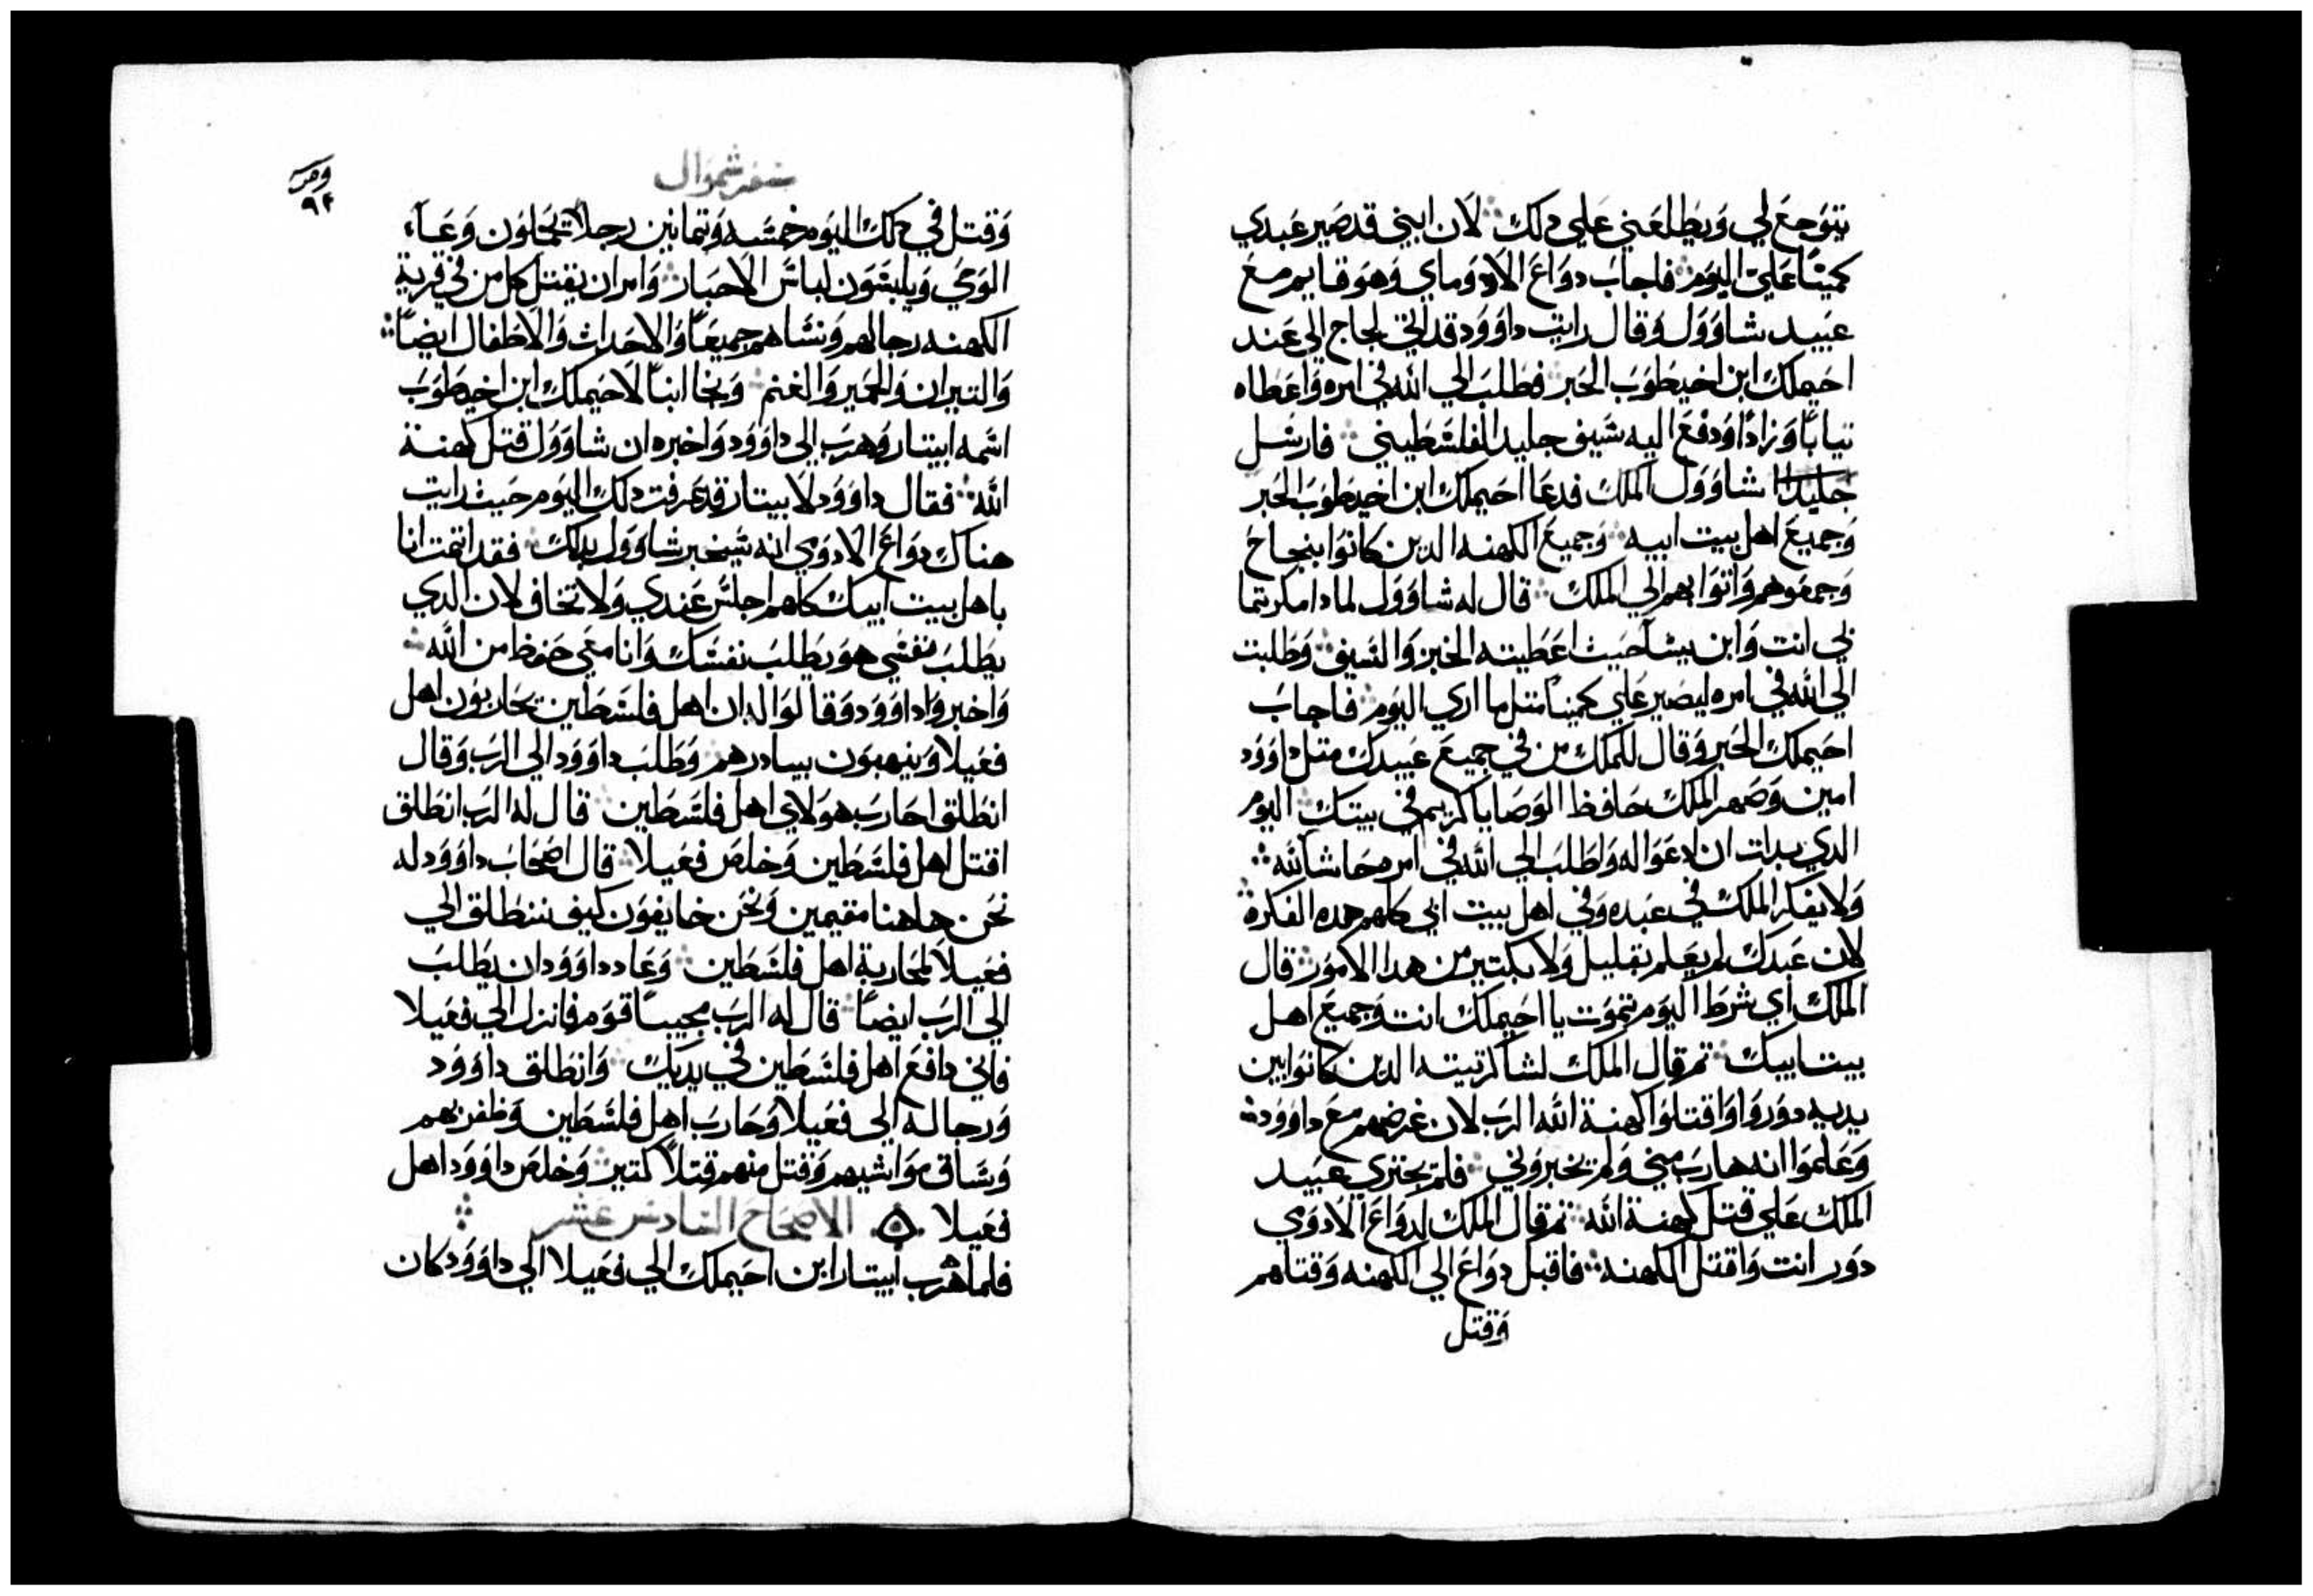 يتوجع لي ويطلعني علي دلك لان ابني قد صير عبدي
كمينًا عليّ اليوم فاجاب دواغ الادوماي وهو قايم مع
عبيد شاوول وقال رايت داوود قد اتي لجاج الي عند
احيملك ابن اخيطوب الحبر فطلب الي الله في امره واعطاه
تيابًا وزادًا ودفع اليه سيف جليد الفلسطيني فارسل
شاوول الملك فدعا احيملك ابن اخيطوب الحبر
وجميع اهل بيت ابيه وجميع الكهنه الدين كانوا بنجاح
وجمعوهم واتوا بهم الي الملك قال له شاوول لمادا مكرتما
بي انت وابن يشا حيث اعطيته الخبز والسيف وطلبت
الي الله في امره ليصير علي كمينًا متل ما اري اليوم فاجاب
احيملك الحبر وقال للملك من في جميع عبيدك متل داوود
امين وصهر الملك حافظ الوصايا كريم في بيتك اليوم
الدي بدات ان ادعوا له واطلب الي الله في امره حاشا لله
ولا يفكر الملك في عبده وفي اهل بيت ابي كلهم هده الفكرة
لان عبدك لم يعلم بقليل ولا بكتير من هدا الامور قال
الملك اي شرط اليوم تموت يا احيملك انت وجميع اهل
بيت ابيك تم قال الملك لشاكرتيته الدين كانوا بين
يديه دوروا واقتلوا كهنة الله الرب لان غرضهم مع داوود
وعلموا انه هارب مني ولم يخبروني فلم يجتري عبيد
الملك علي قتل كهنة الله تم قال الملك لدواغ الادوي
دور انت واقتل الكهنه فاقبل دواغ الي الكهنه وقتلهم
وقتل
سفر شموال
٩٢
وقتل في دلك اليوم خمسه وتمانين رجلاً يحملون وعاء
الوحي ويلبسون لباس الاحبار وامر ان يقتل كل من في قرية
الكهنه رجالهم ونساهم جميعًا والاحداث والاطفال ايضًا
والتيران والحمير والغنم ونجا ابنًا لاحيملك ابن اخيطوب
اسمه ابيتار وهرب الي داوود واخبره ان شاوول قتل كهنة
الله فقال داوود لابيتار قد عرفت دلك اليوم حيث رايت
هناك دواغ الادوي انه سيخبر شاوول بدلك فقد اتمت انا
باهل بيت ابيك كلهم اجلس عندي ولا تخاف لان الدي
يطلب نفسي هو يطلب نفسك وانا معي حفوظ من الله
واخبروا داوود وقالوا له ان اهل فلسطين يحاربون اهل
فعيلا وينهبون بيادرهم وطلب داوود الي الرب وقال
انطلق احارب هولاي اهل فلسطين قال له الرب انطلق
اقتل اهل فلسطين وخلص فعيلا قال اصحاب داوود له
نحن هاهنا مقيمين ونحن خايفون كيف ننطلق الي
فعيلا لمحاربة اهل فلسطين وعاد داوود ان يطلب
الي الرب ايضًا قال له الرب مجيبًا قوم فانزل الي فعيلا
فاني دافع اهل فلسطين في يديك وانطلق داوود
ورجاله الي فعيلا وحارب اهل فلسطين وظفر بهم
وساق مواشيهم وقتل منهم قتلاً كتير وخلص داوود اهل
فعيلا ۞ الاصحاح السادس عشر
فلما هرب ابيتار ابن احيملك الي فعيلا الي داوود كان